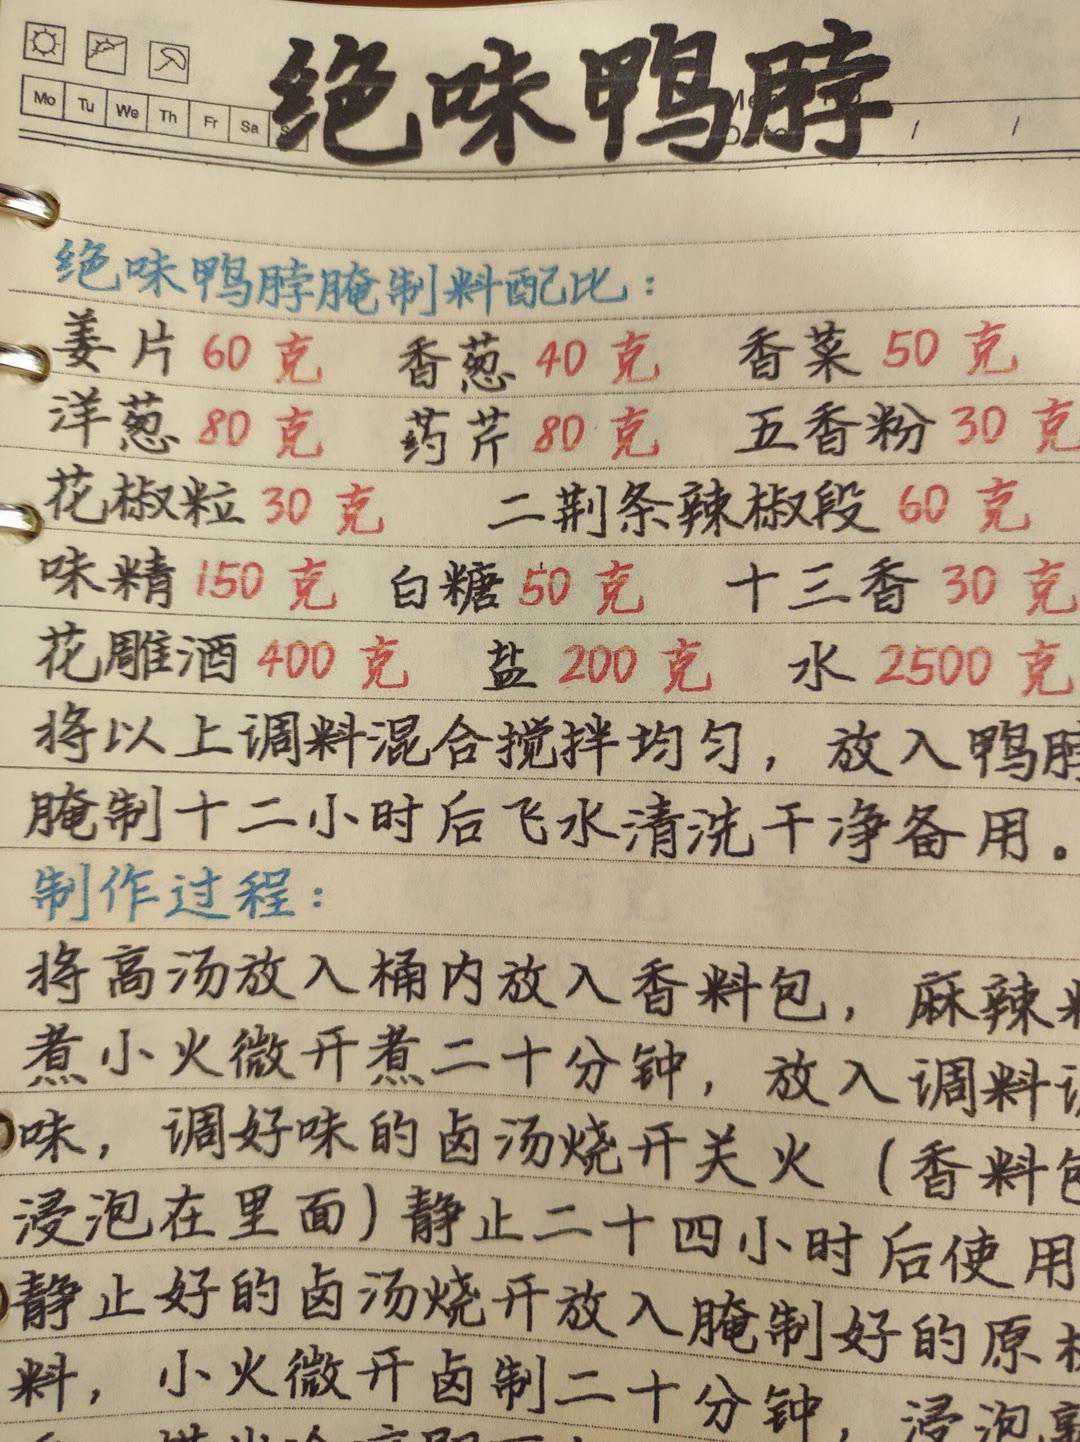 绝味鸭脖
Mo Tu We Th Fr Sa
绝味鸭脖腌制料配比：
姜片 60 克 香葱 40 克 香菜 50 克
洋葱 80 克 药芹 80 克 五香粉 30 克
花椒粒 30 克 二荆条辣椒段 60 克
味精 150 克 白糖 50 克 十三香 30 克
花雕酒 400 克 盐 200 克 水 2500 克
将以上调料混合搅拌均匀，放入鸭脖
腌制十二小时后飞水清洗干净备用。
制作过程：
将高汤放入桶内放入香料包，麻辣料
煮小火微开煮二十分钟，放入调料调
味，调好味的卤汤烧开关火（香料包
浸泡在里面）静止二十四小时后使用
静止好的卤汤烧开放入腌制好的原材
料，小火微开卤制二十分钟，浸泡